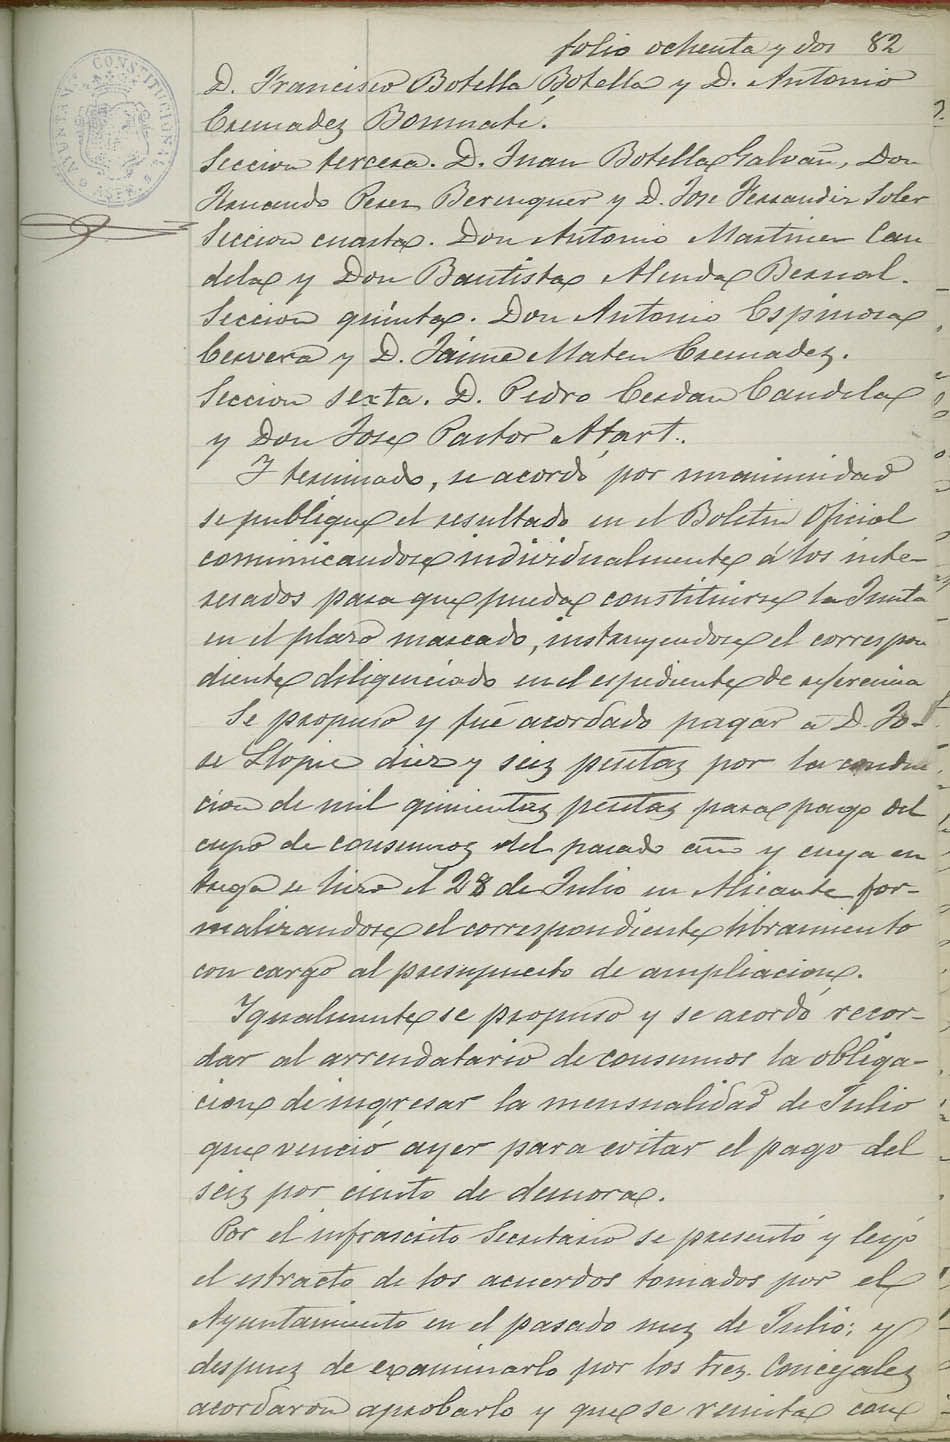 folio ochenta y dos 82
AYUNTAMTO CONSTITUCIONAL
ASPE
D. Francisco Botella Botella y D. Antonio
Cremadez Bonmati.
Seccion tercera. D. Juan Botella Galvañ, Don
Fernando Perez Berenguer y D. Jose Ferrandiz Soler
Seccion cuarta. Don Antonio Martinez Can
dela y Don Bautista Almda Bernal.
Seccion quinta. Don Antonio Espinosa
Cervera y D. Jaime Mateu Cremadez.
Seccion sexta. D. Pedro Cerdan Candela
y Don Jose Pastor
Y terminado, se acordó por unanimidad
se publique el resultado en el Boletin Oficial
comunicandose individualmente á los inte-
resados para que pueda constituirse la Junta
en el plazo marcado, instruyendose el correspon
diente diligenciado en el espediente de referencia
Se propuso y fué acordado pagar a D. Jo-
se Llopiz diez y seiz pesetaz por la conduc
cion de mil quinientaz pesetaz para pago del
cupo de consumoz del pasado año y cuya en
trega se hizo el 28 de Julio en Alicante for-
malizandose el correspondiente libramiento
con cargo al presupuesto de ampliacion.
Igualmente se propuso y se acordó recor-
dar al arrendatario de consumos la obliga-
cion de ingresar la mensualidad de Julio
que venció ayer para evitar el pago del
seiz por ciento de demora.
Por el infrascrito Secretario se presentó y leyó
el estracto de los acuerdos tomados por el
Ayuntamiento en el pasado mez de Julio; y
despuez de examinarlo por los trez Concejalez
acordaron aprobarlo y que se remita con